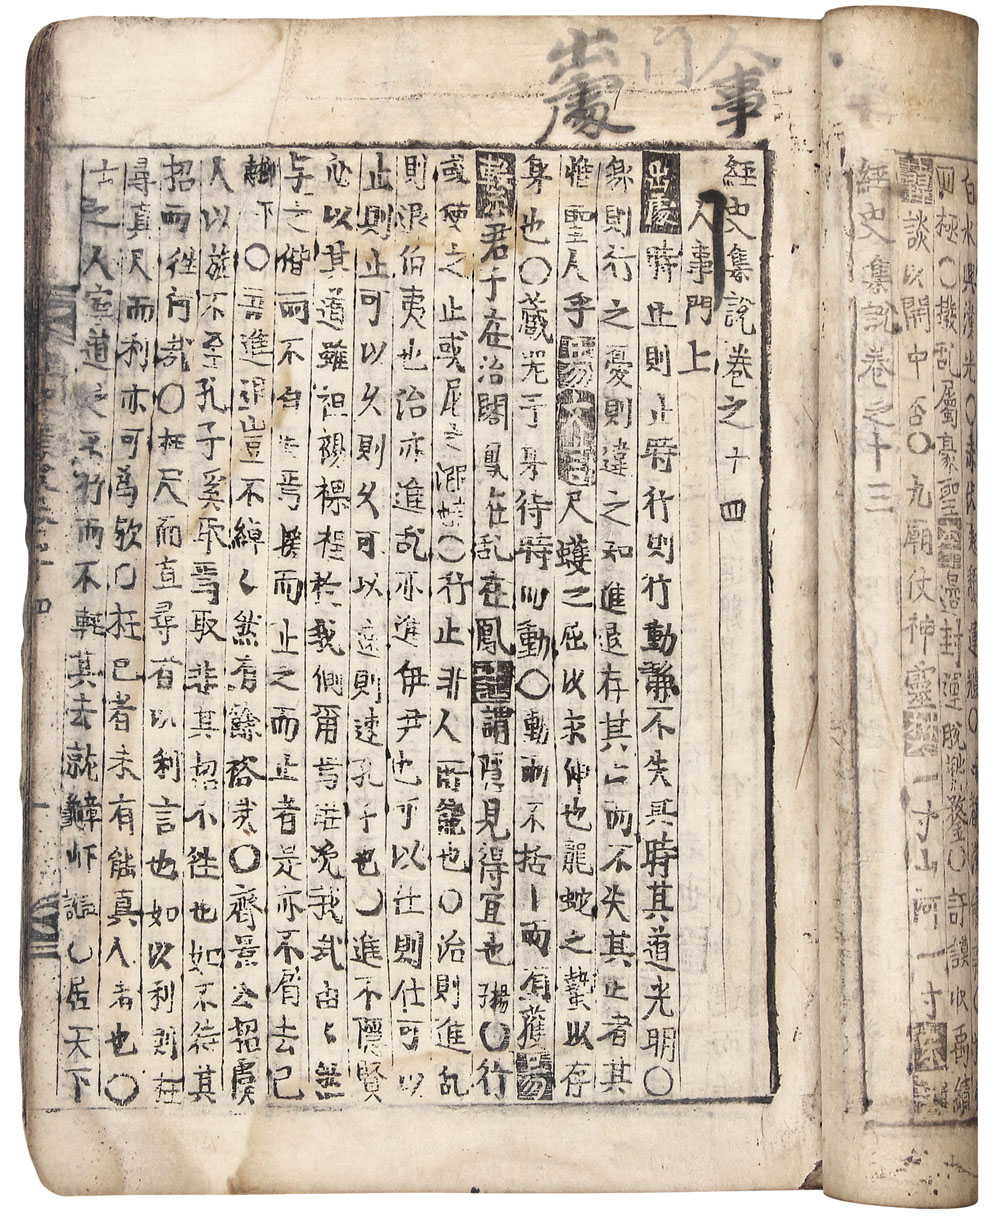 人事門
出處
四極〇撥乱屬豪聖邊封運脫〇訏謨收禹績
談以開中否〇九廟仗神靈一寸山河一寸
經史集說卷之十三
經史集說卷之十四
人事門上
出處時止則止時行則行動靜不失其時其道光明〇
則行之憂則違之知進退存其亡而不失其正者其
惟聖人乎易文言尺蠖之屈以求伸也龍蛇之蟄以存
身也〇藏器于身待時而動〇動而不括丨而有獲易
繫君子在治鳳在乱在鳳註謂隱見得宜也揚〇行
或使之止或尼之〇行止非人所能也〇治則進乱
則退伯夷也治亦進乱亦進伊尹也可以仕則仕可以
止則止可以久則久可以速則速孔子也〇進不隱賢
必以其道雖袒裼裸裎於我側爾焉能浼我哉由〻然
与之偕而不自失焉援而止之而止者是亦不屑去已
下〇吾進退豈不綽〻然有餘裕哉〇齊景公招虞
人以旌不至孔子奚取焉取非其招不徃也如不待其
招而徃何哉〇枉尺而直尋者以利言也如以利則枉
尋直尺而利亦可為歟〇枉己者未有能直人者也〇
古之人寧道之不行而不輕其去就〇居天下